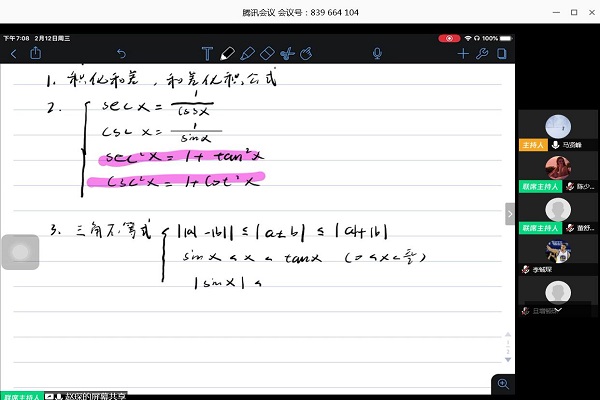 腾讯会议 会议号：839 664 104
下午7:08 2月12日周三
100%
1. 积化和差，和差化积公式
2. sec x = 1/cosx
csc x = 1/sinx
sec²x = 1 + tan²x
csc²x = 1 + cot²x
3. 三角不等式 ||a|-|b|| ≤ |a±b| ≤ |a|+|b|
sinx < x < tanx (0<x<π/2)
|sinx| <
主持人 马贤峰
联席主持人 陈少...
联席主持人 董舒...
李铖琛
联席主持人 赵琛的屏幕共享